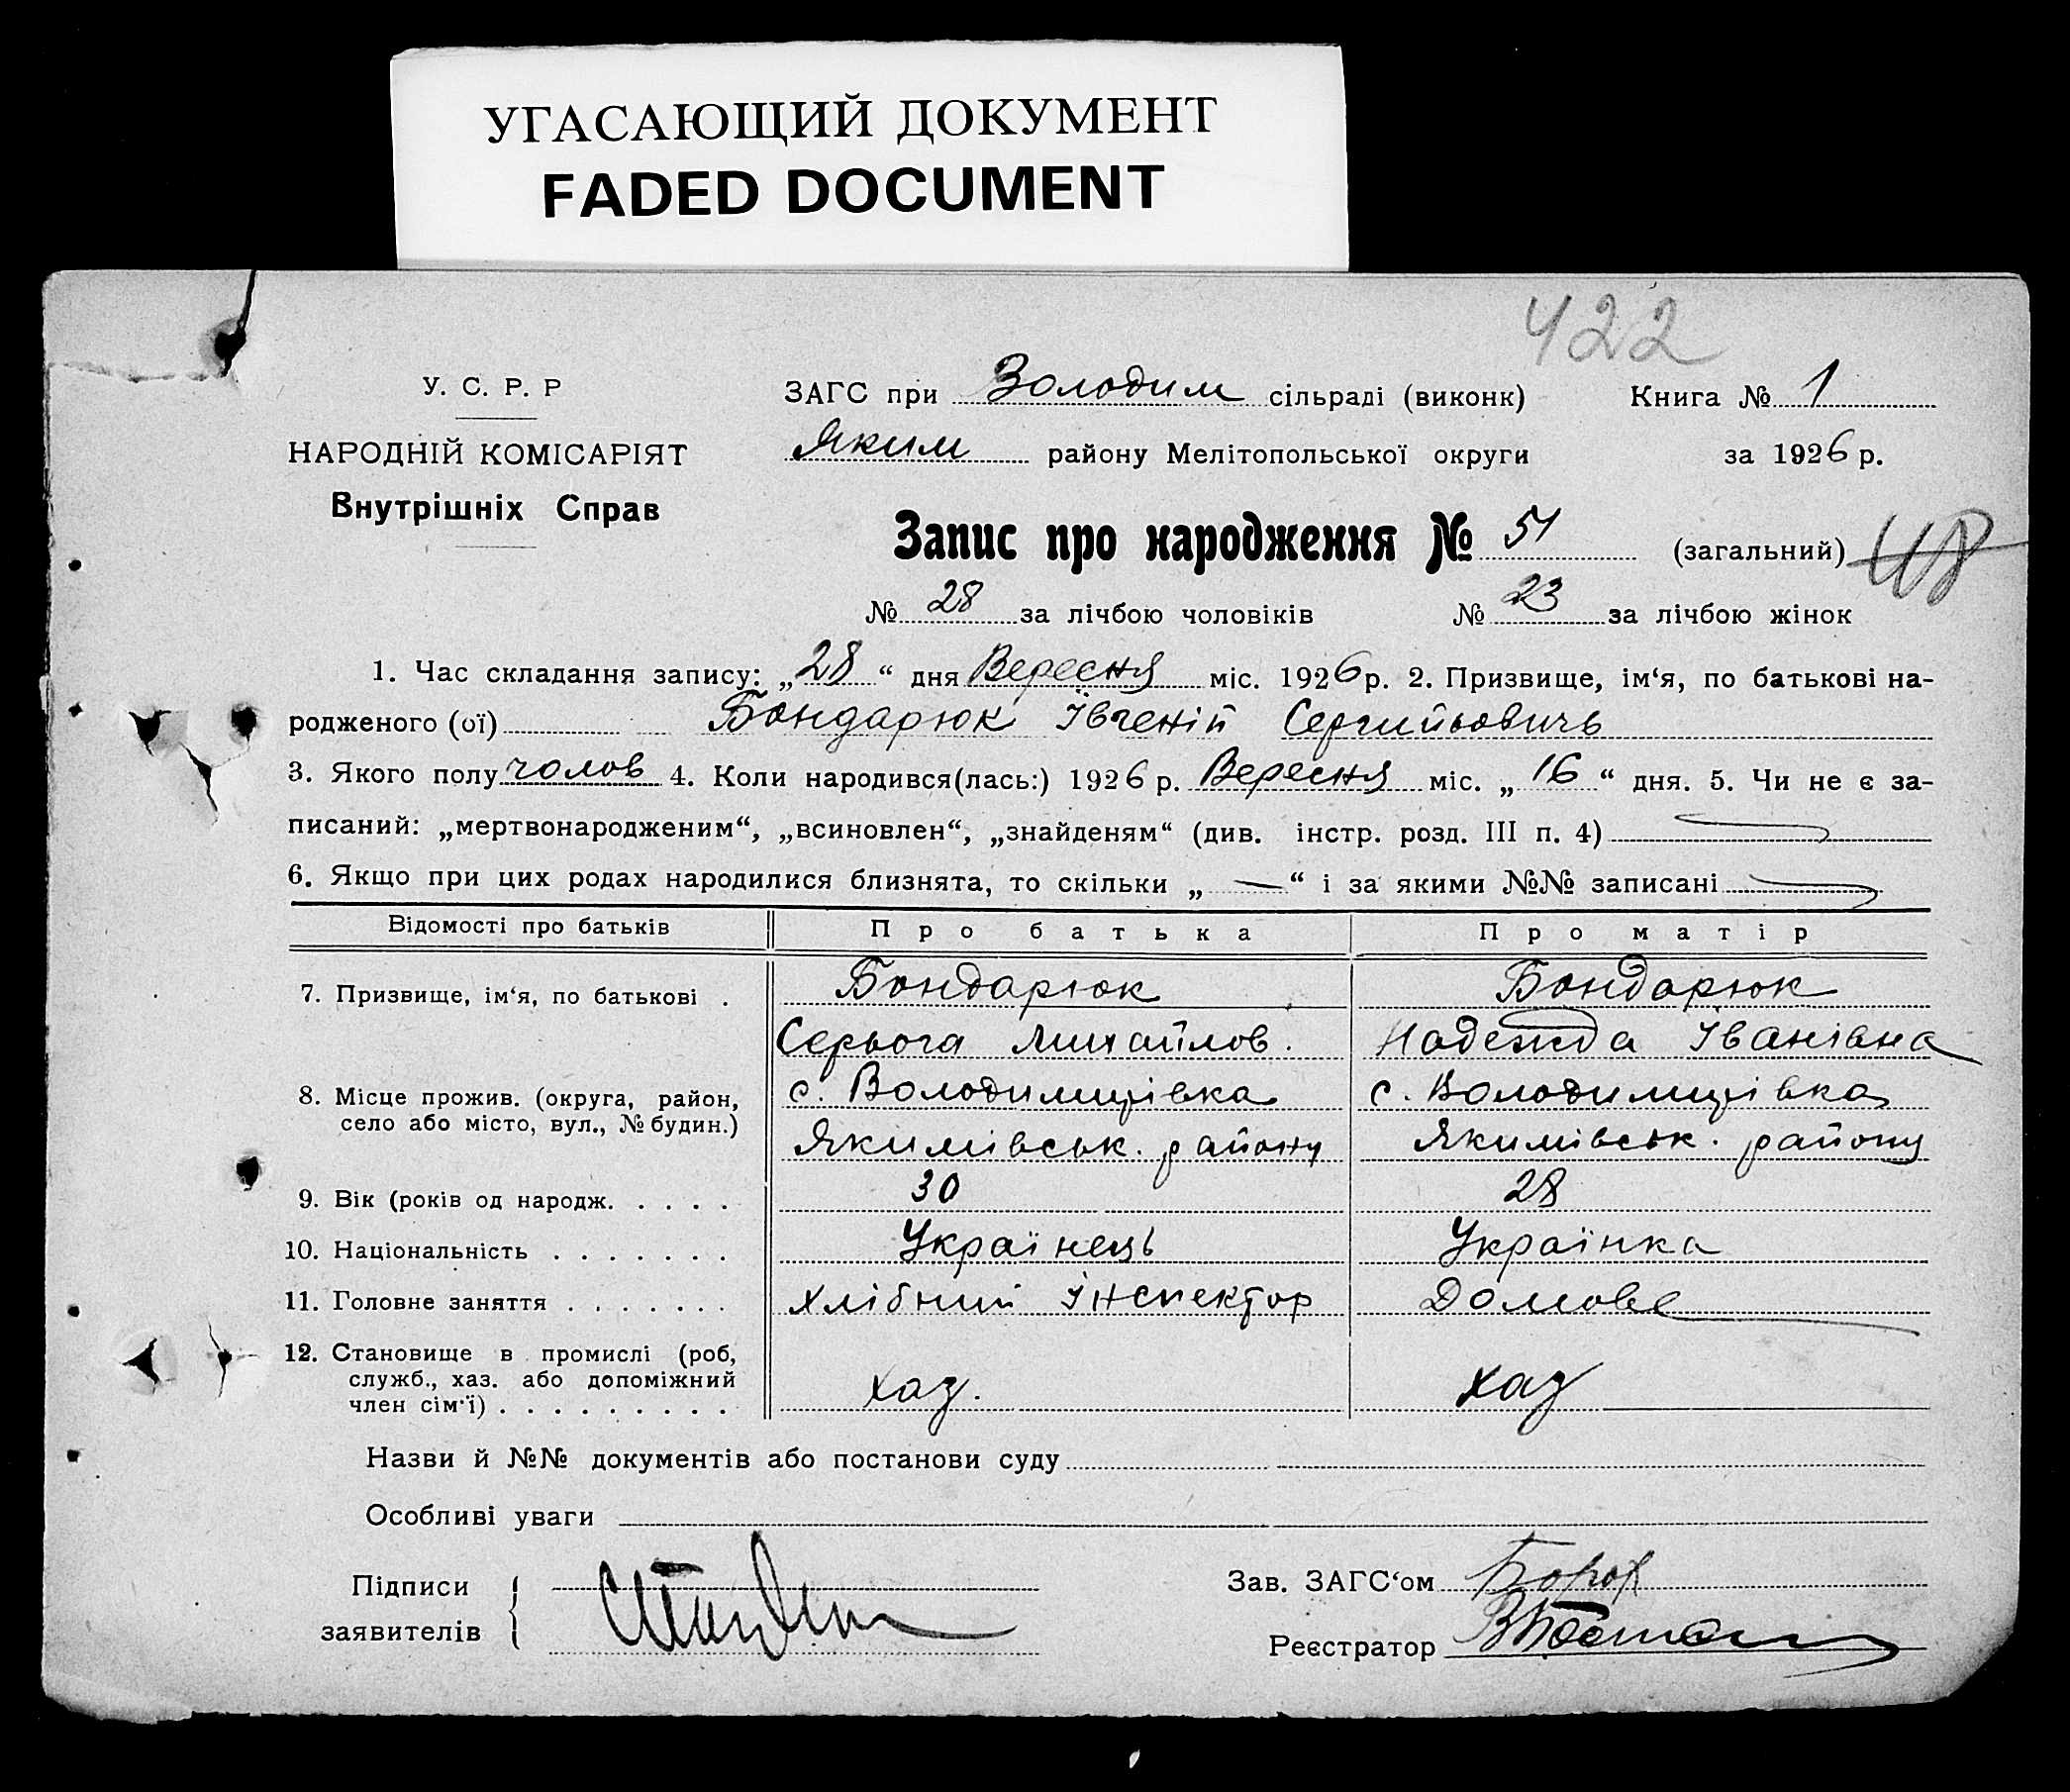 УГАСАЮЩИЙ ДОКУМЕНТ
FADED DOCUMENT
422
У. С. Р. Р
НАРОДНІЙ КОМІСАРІЯТ
Внутрішніх Справ
ЗАГС при Володим сільраді (виконк) Книга № 1
Яким району Мелітопольської округи за 1926 р.
Запис про народження № 51 (загальний)
№ 28 за лічбою чоловіків № 23 за лічбою жінок
1. Час складання запису: „28“ дня Вересня міс. 1926 р. 2. Призвище, ім‘я, по батькові на-
родженого (ої) Бондарюк Івгеній Сергийовичь
3. Якого полу чолов 4. Коли народився(лась:) 1926 р. Вересня міс. „16“ дня. 5. Чи не є за-
писаний: „мертвонародженим“, „всиновлен“, „знайденям“ (див. інстр. розд. III п. 4)
6. Якщо при цих родах народилися близнята, то скільки „—“ і за якими №№ записані
Відомості про батьків Про батька Про матір
7. Призвище, ім‘я, по батькові . Бондарюк Бондарюк
Серьога Михайлов. Надежда Іванівна
8. Місце прожив. (округа, район, с. Володимирівка с. Володимирівка
село або місто, вул., № будин.) Якимівськ. району Якимівськ. району
9. Вік (років од народж. . . . . 30 28
10. Національність . . . . . . . Українець Українка
11. Головне заняття . . . . . . . Хлібний Інспектор Домове
12. Становище в промислі (роб,
служб., хаз. або допоміжний хаз. хаз
член сім‘ї) . . . . . . . . .
Назви й №№ документів або постанови суду
Особливі уваги
Підписи Зав. ЗАГС‘ом
заявителів Реєстратор